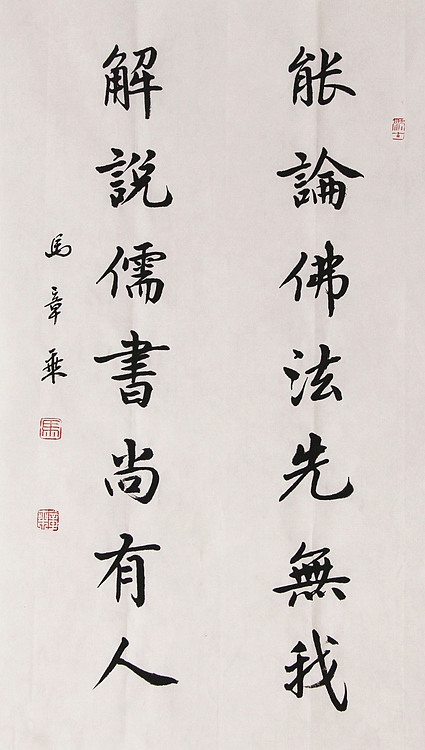 能論佛法先無我
解說儒書尚有人
馬章乘